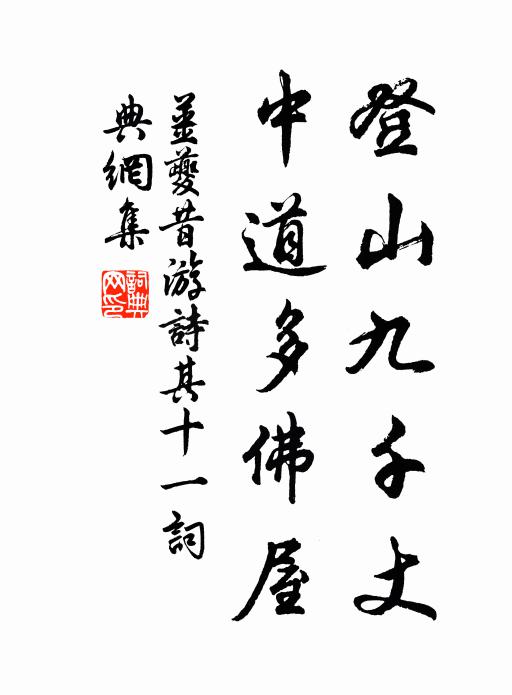 登山九千丈
中道多佛屋
姜夔昔游詩其十一詞
典網集
詞典
网印